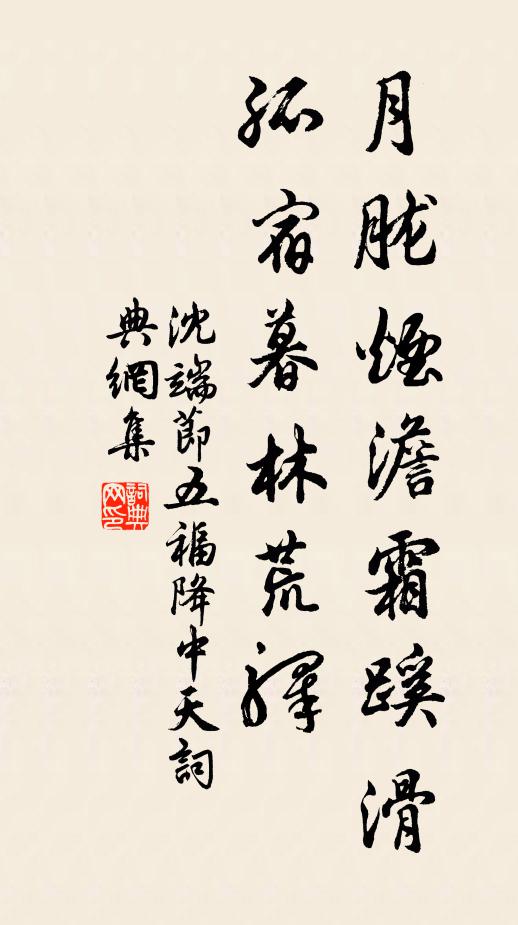 月朧煙澹霜蹊滑
孤宿暮林荒驛
沈端節五福降中天詞
典網集
詞典
网印